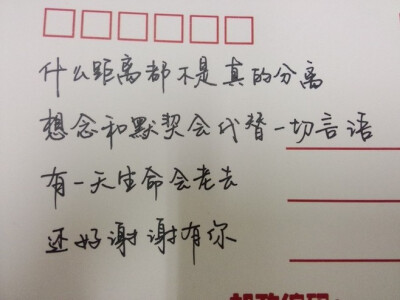 什么距离都不是真的分离
想念和默契会代替一切言语
有一天生命会老去
还好谢谢有你
邮政编码